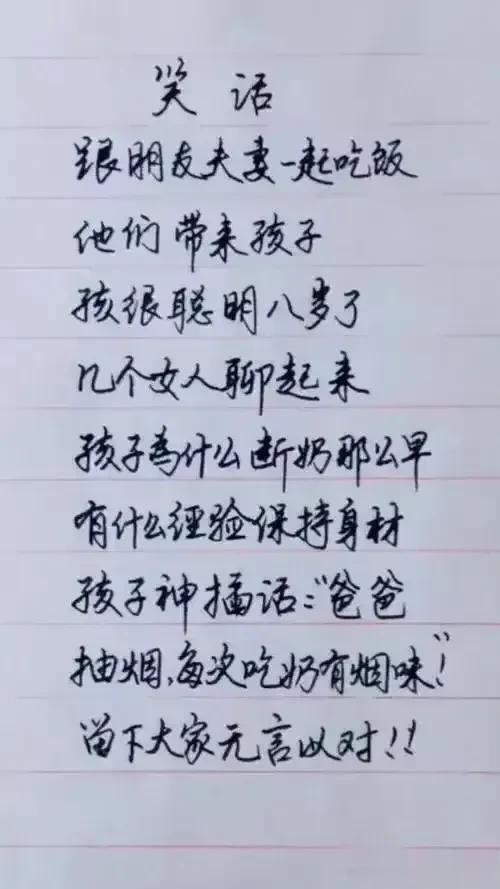 笑话
跟朋友夫妻一起吃饭
他们带来孩子
孩很聪明八岁了
几个女人聊起来
孩子為什么断奶那么早
有什么经验保持身材
孩子神插话:"爸爸
抽烟,每次吃奶有烟味"!
留下大家无言以对!!